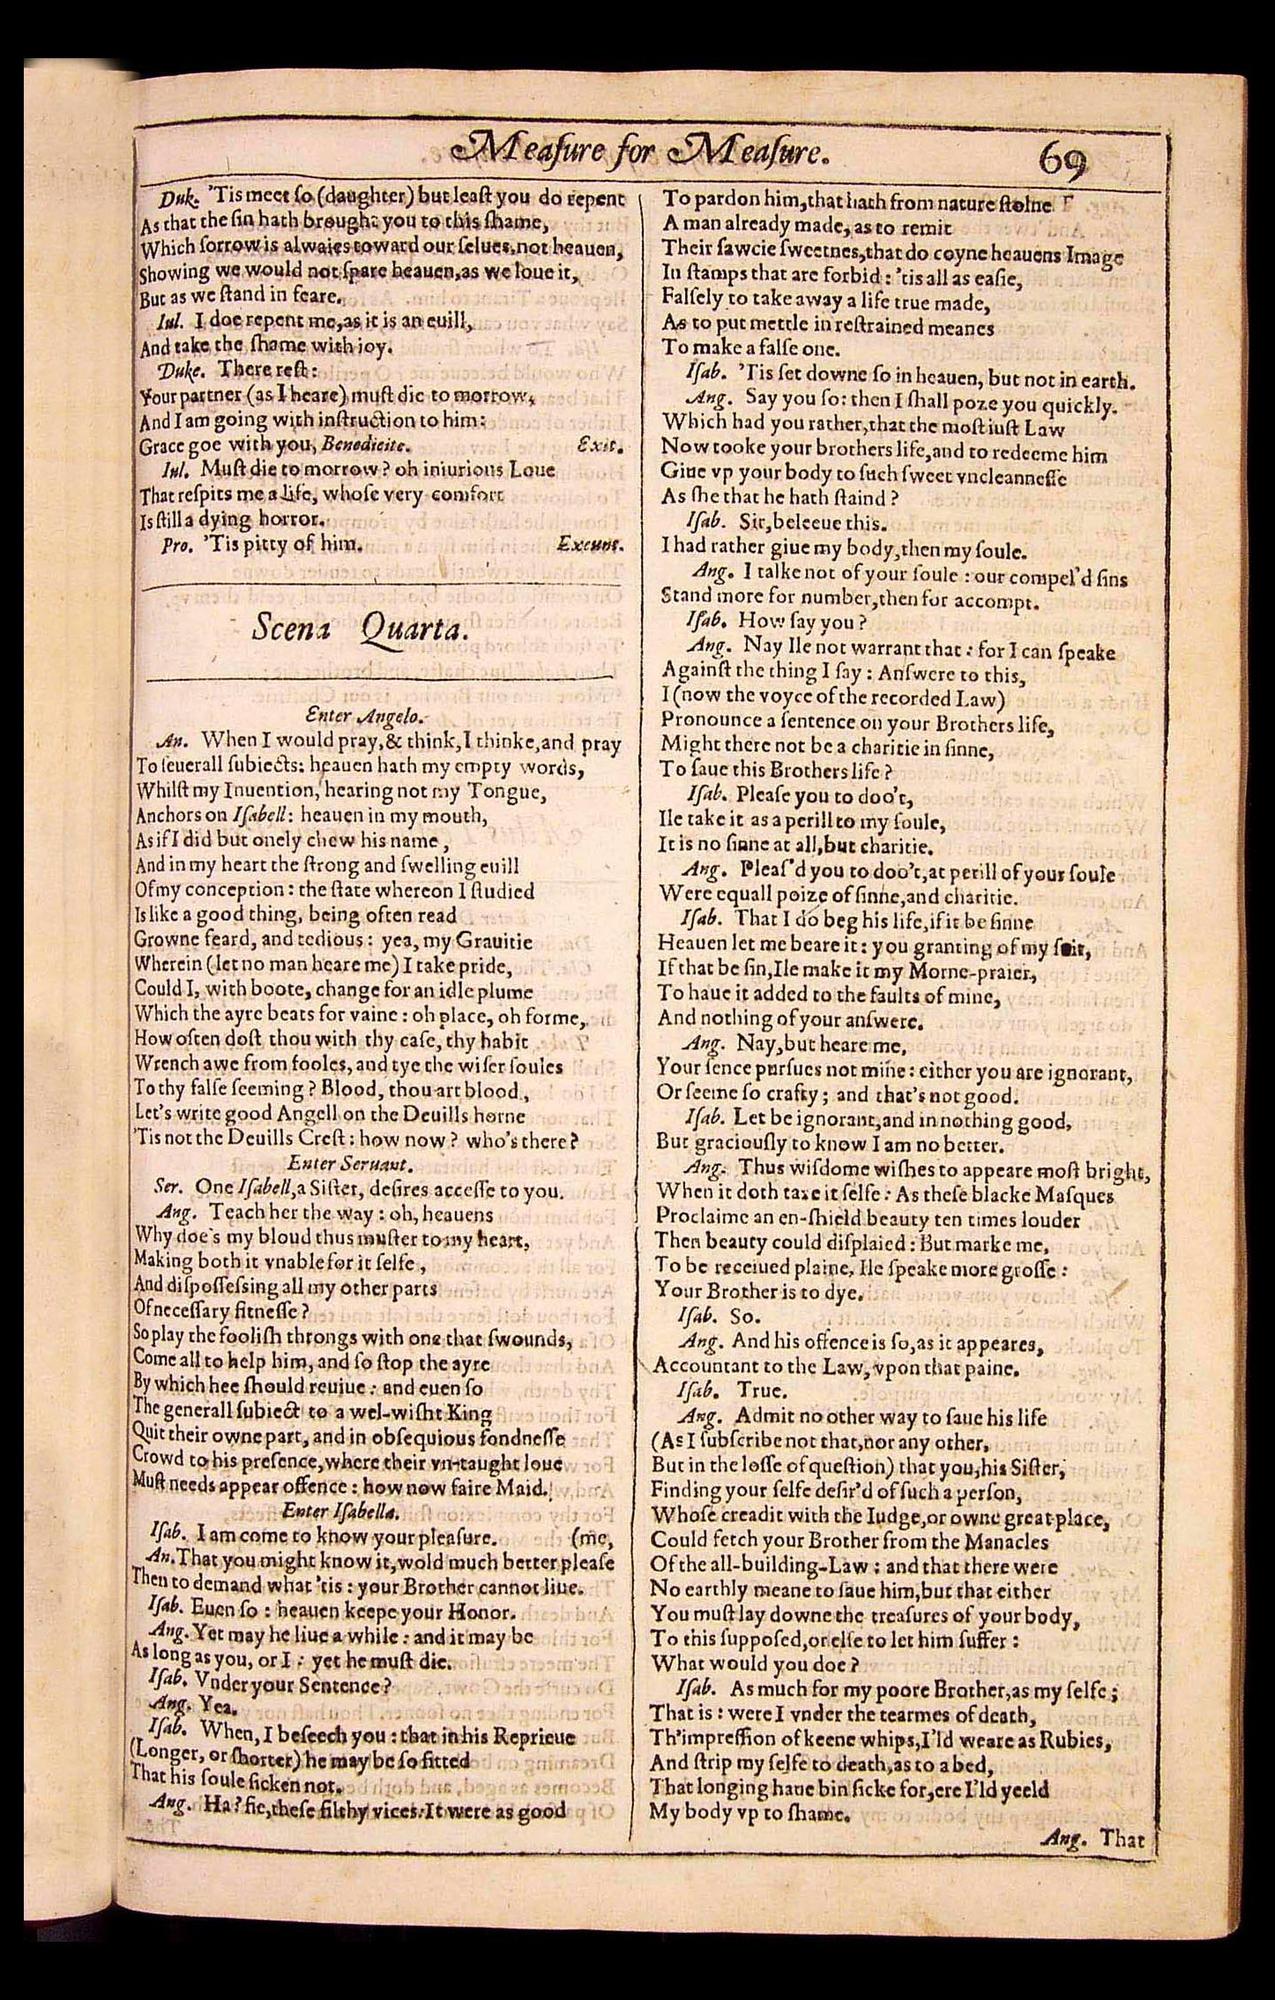 Meaſure for Meaſure. 69
Duk. 'Tis meet ſo (daughter) but leaſt you do repent
As that the ſin hath brought you to this ſhame,
Which ſorrow is alwaies toward our ſelues, not heauen,
Showing we would not ſpare heauen, as we loue it,
But as we ſtand in feare.
Iul. I doe repent me, as it is an euill,
And take the ſhame with ioy.
Duke. There reſt:
Your partner (as I heare) muſt die to morrow,
And I am going with inſtruction to him:
Grace goe with you, Benedicite. Exit.
Iul. Muſt die to morrow? oh iniurious Loue
That reſpits me a life, whoſe very comfort
Is ſtill a dying horror.
Pro. 'Tis pitty of him. Exeunt.
Scena Quarta.
Enter Angelo.
An. When I would pray, & think, I thinke, and pray
To ſeuerall ſubiects: heauen hath my empty words,
Whilſt my Inuention, hearing not my Tongue,
Anchors on Iſabell: heauen in my mouth,
As if I did but onely chew his name,
And in my heart the ſtrong and ſwelling euill
Of my conception: the ſtate whereon I ſtudied
Is like a good thing, being often read
Growne feard, and tedious: yea, my Grauitie
Wherein (let no man heare me) I take pride,
Could I, with boote, change for an idle plume
Which the ayre beats for vaine: oh place, oh forme,
How often doſt thou with thy caſe, thy habit
Wrench awe from fooles, and tye the wiſer ſoules
To thy falſe ſeeming? Blood, thou art blood,
Let's write good Angell on the Deuills horne
'Tis not the Deuills Creſt: how now? who's there?
Enter Seruant.
Ser. One Iſabell, a Siſter, deſires acceſſe to you.
Ang. Teach her the way: oh, heauens
Why doe's my bloud thus muſter to my heart,
Making both it vnable for it ſelfe,
And diſpoſſeſsing all my other parts
Of neceſſary fitneſſe?
So play the fooliſh throngs with one that ſwounds,
Come all to help him, and ſo ſtop the ayre
By which hee ſhould reuiue: and euen ſo
The generall ſubiect to a wel-wiſht King
Quit their owne part, and in obſequious fondneſſe
Crowd to his preſence, where their vn-taught loue
Muſt needs appear offence: how now faire Maid.
Enter Iſabella.
Iſab. I am come to know your pleaſure. (me,
An. That you might know it, wold much better pleaſe
Then to demand what 'tis: your Brother cannot liue.
Iſab. Euen ſo: heauen keepe your Honor.
Ang. Yet may he liue a while: and it may be
As long as you, or I: yet he muſt die.
Iſab. Vnder your Sentence?
Ang. Yea.
Iſab. When, I beſeech you: that in his Reprieue
(Longer, or ſhorter) he may be ſo fitted
That his ſoule ſicken not.
Ang. Ha? fie, theſe filthy vices: It were as good
To pardon him, that hath from nature ſtolne
A man already made, as to remit
Their ſawcie ſweetnes, that do coyne heauens Image
In ſtamps that are forbid: 'tis all as eaſie,
Falſely to take away a life true made,
As to put mettle in reſtrained meanes
To make a falſe one.
Iſab. 'Tis ſet downe ſo in heauen, but not in earth.
Ang. Say you ſo: then I ſhall poze you quickly.
Which had you rather, that the moſt iuſt Law
Now tooke your brothers life, and to redeeme him
Giue vp your body to ſuch ſweet vncleanneſſe
As ſhe that he hath ſtaind?
Iſab. Sir, beleeue this.
I had rather giue my body, then my ſoule.
Ang. I talke not of your ſoule: our compel'd ſins
Stand more for number, then for accompt.
Iſab. How ſay you?
Ang. Nay Ile not warrant that: for I can ſpeake
Againſt the thing I ſay: Anſwere to this,
I (now the voyce of the recorded Law)
Pronounce a ſentence on your Brothers life,
Might there not be a charitie in ſinne,
To ſaue this Brothers life?
Iſab. Pleaſe you to doo't,
Ile take it as a perill to my ſoule,
It is no ſinne at all, but charitie.
Ang. Pleaſ'd you to doo't, at perill of your ſoule
Were equall poize of ſinne, and charitie.
Iſab. That I do beg his life, if it be ſinne
Heauen let me beare it: you granting of my ſuit,
If that be ſin, Ile make it my Morne-praier,
To haue it added to the faults of mine,
And nothing of your anſwere.
Ang. Nay, but heare me,
Your ſence purſues not mine: either you are ignorant,
Or ſeeme ſo crafty; and that's not good.
Iſab. Let be ignorant, and in nothing good,
But graciouſly to know I am no better.
Ang. Thus wiſdome wiſhes to appeare moſt bright,
When it doth taxe it ſelfe: As theſe blacke Maſques
Proclaime an en-ſhield beauty ten times louder
Then beauty could diſplaied: But marke me,
To be receiued plaine, Ile ſpeake more groſſe:
Your Brother is to dye.
Iſab. So.
Ang. And his offence is ſo, as it appeares,
Accountant to the Law, vpon that paine.
Iſab. True.
Ang. Admit no other way to ſaue his life
(As I ſubſcribe not that, nor any other,
But in the loſſe of queſtion) that you, his Siſter,
Finding your ſelfe deſir'd of ſuch a perſon,
Whoſe creadit with the Iudge, or owne great place,
Could fetch your Brother from the Manacles
Of the all-building-Law: and that there were
No earthly meane to ſaue him, but that either
You muſt lay downe the treaſures of your body,
To this ſuppoſed, or elſe to let him ſuffer:
What would you doe?
Iſab. As much for my poore Brother, as my ſelfe;
That is: were I vnder the tearmes of death,
Th'impreſſion of keene whips, I'ld weare as Rubies,
And ſtrip my ſelfe to death, as to a bed,
That longing haue bin ſicke for, ere I'ld yeeld
My body vp to ſhame.
Ang. That